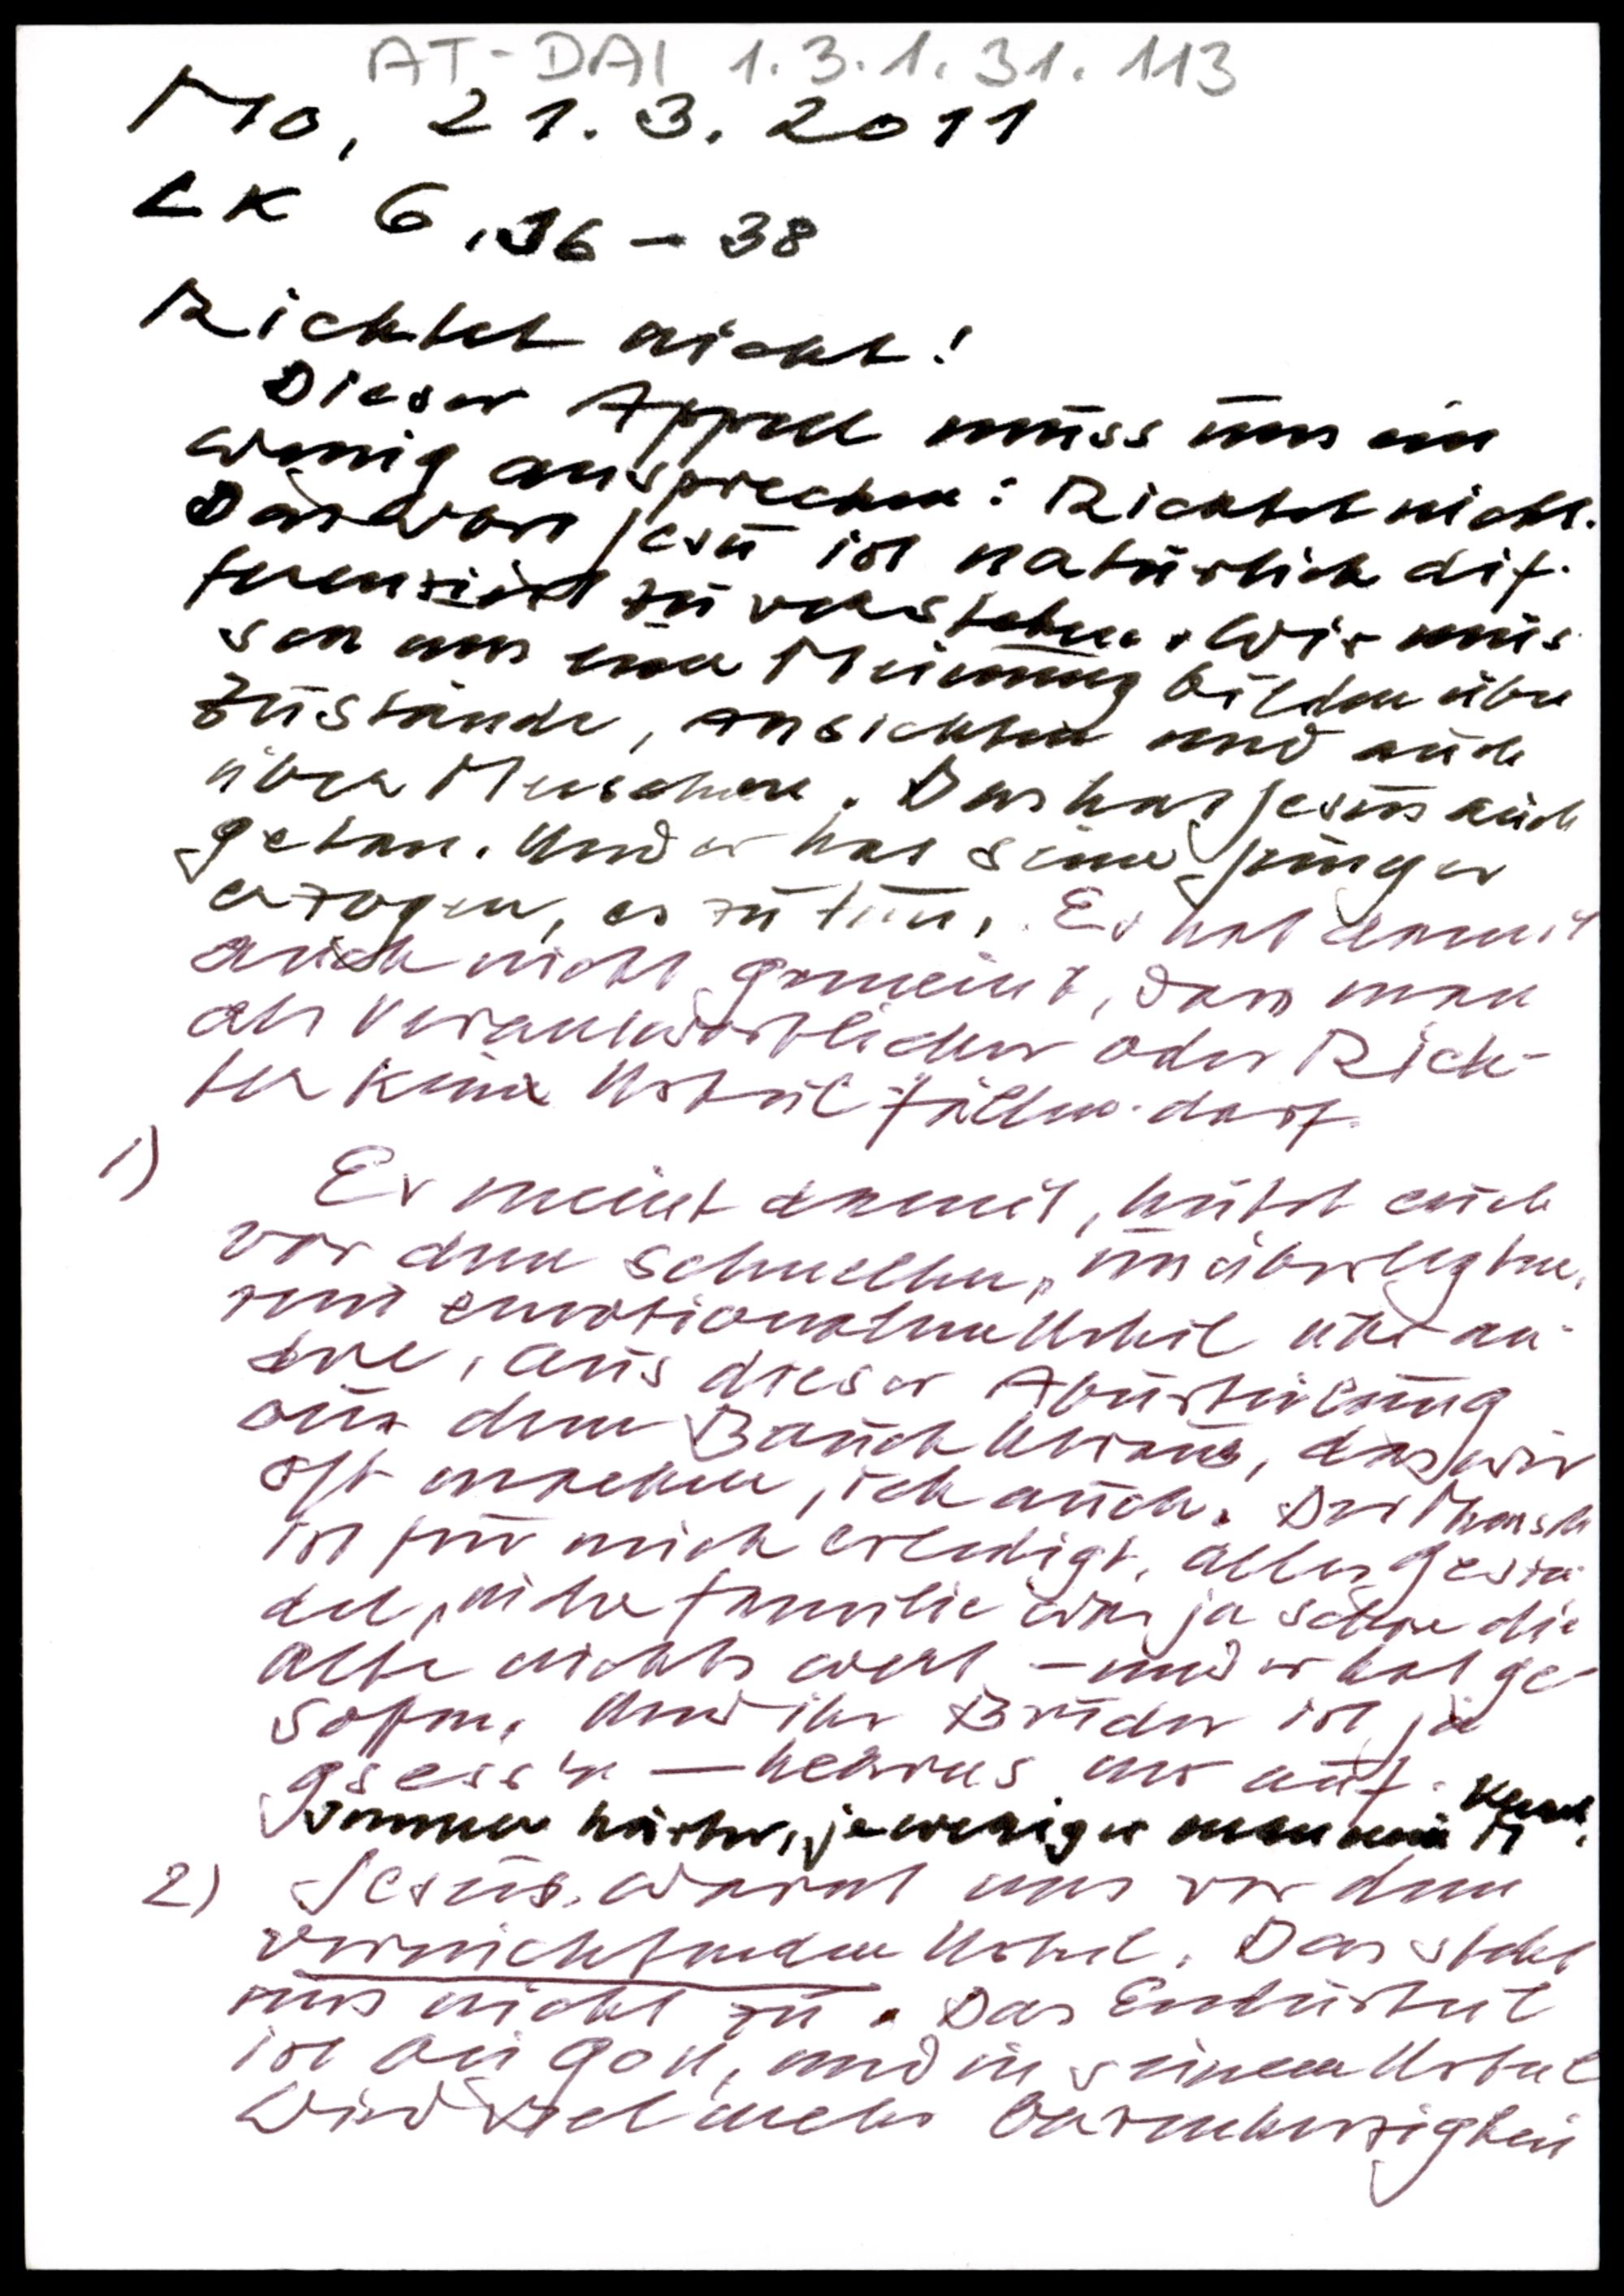 AT-DAI 1.3.1.31.113
Mo, 21.3.2011
LK 6,36-38
Richtet nicht!
Dieser Appell muss uns ein
wenig ansprechen: Richtet nicht.
Das Wort Jesu ist natürlich dif-
ferenziert zu verstehen. Wir müs-
sen uns eine Meinung bilden über
Zustände, Ansichten und auch
über Menschen. Das hat Jesus auch
getan. Und er hat seine Jünger
erzogen, es zu tun. Er hat damit
auch nicht gemeint, dass man
als Verantwortlicher oder Rich-
ter keine Urteil fällen darf.
1) Er meint damit, hütet euch
vor dem schnellen, unüberlegten,
rein emotionalen Urteil über an-
dre, aus dieser Aburteilung
aus dem Bauch heraus, das wir
oft machen, ich auch. Der Mensch
ist für mich erledigt, alles Gesin-
del, die Familie war ja schon die
Alte nichts wert - und er hat ge-
soffen. Und ihr Bruder ist ja
gsess'n -
immer härter, je weniger man kennt.
2) Jesus warnt uns vor dem
vernichtenden Urteil. Das steht
uns nicht zu. Das Endurteil
ist bei Gott, und in seinem Urteil
wird viel mehr Barmherzigkeit